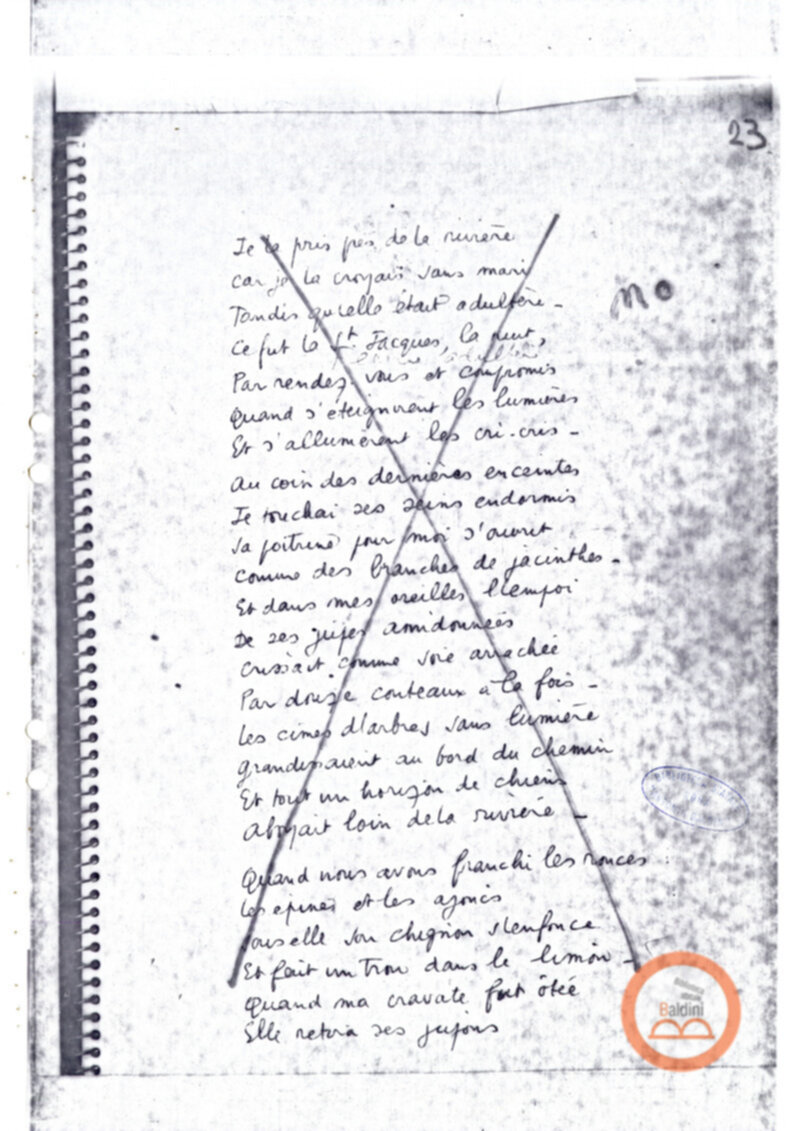 23
Je la pris près de la rivière
Car je la croyais sans mari
Tandis qu'elle était adultère -
Ce fut la St. Jacques, la nuit,
Par rendez-vous et compromis
Quand s'éteignirent les lumières
Et s'allumèrent les cri-cris -
mo
Au coin des dernières enceintes
Je touchai ses seins endormis
Sa poitrine pour moi s'ouvrit
Comme des branches de jacinthes -
Et dans mes oreilles l'empoi
De ses jupes amidonnées
Crissait comme soie arrachée
Par douze couteaux à la fois -
Les cimes d'arbres sans lumière
Grandissaient au bord du chemin
Et tout un horizon de chiens
Aboyait loin de la rivière -
Quand nous avons franchi les ronces
Les épines et les ajoncs
Sous elle son chignon s'enfonce
Et fait un trou dans le limon -
Quand ma cravate fut ôtée
Elle retira ses jupons
Baldini